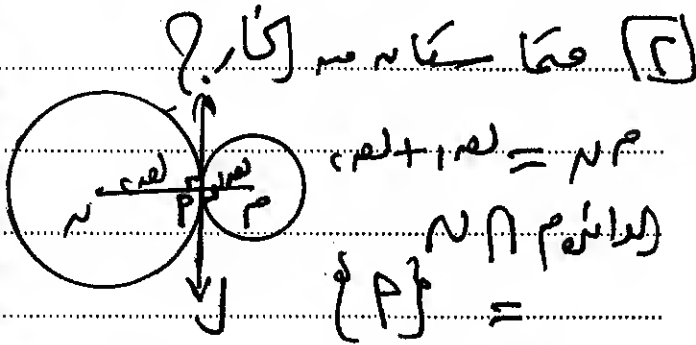 [٢] متماستان من الخارج؟
م ن = نق١ + نق٢
الدائرة م ∩ ن
= {م}
نق٢ نق١
ن م م
ل